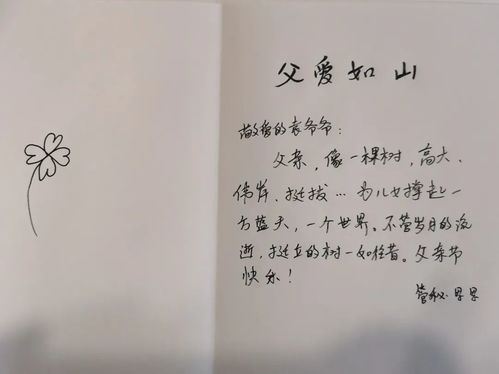 父爱如山
敬爱的袁爷爷：
父亲，像一棵树，高大、
伟岸、挺拔…为儿女撑起一
方蓝天，一个世界。不管岁月的流
逝，挺立的树一如往昔。父亲节
快乐！